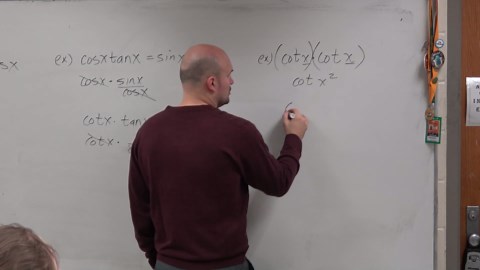 sx
ex) cosx tanx = sinx
cosx · sinx/cosx
cotx · tan
cotx ·
ex) (cotx)·(cotx)
cot x²
(